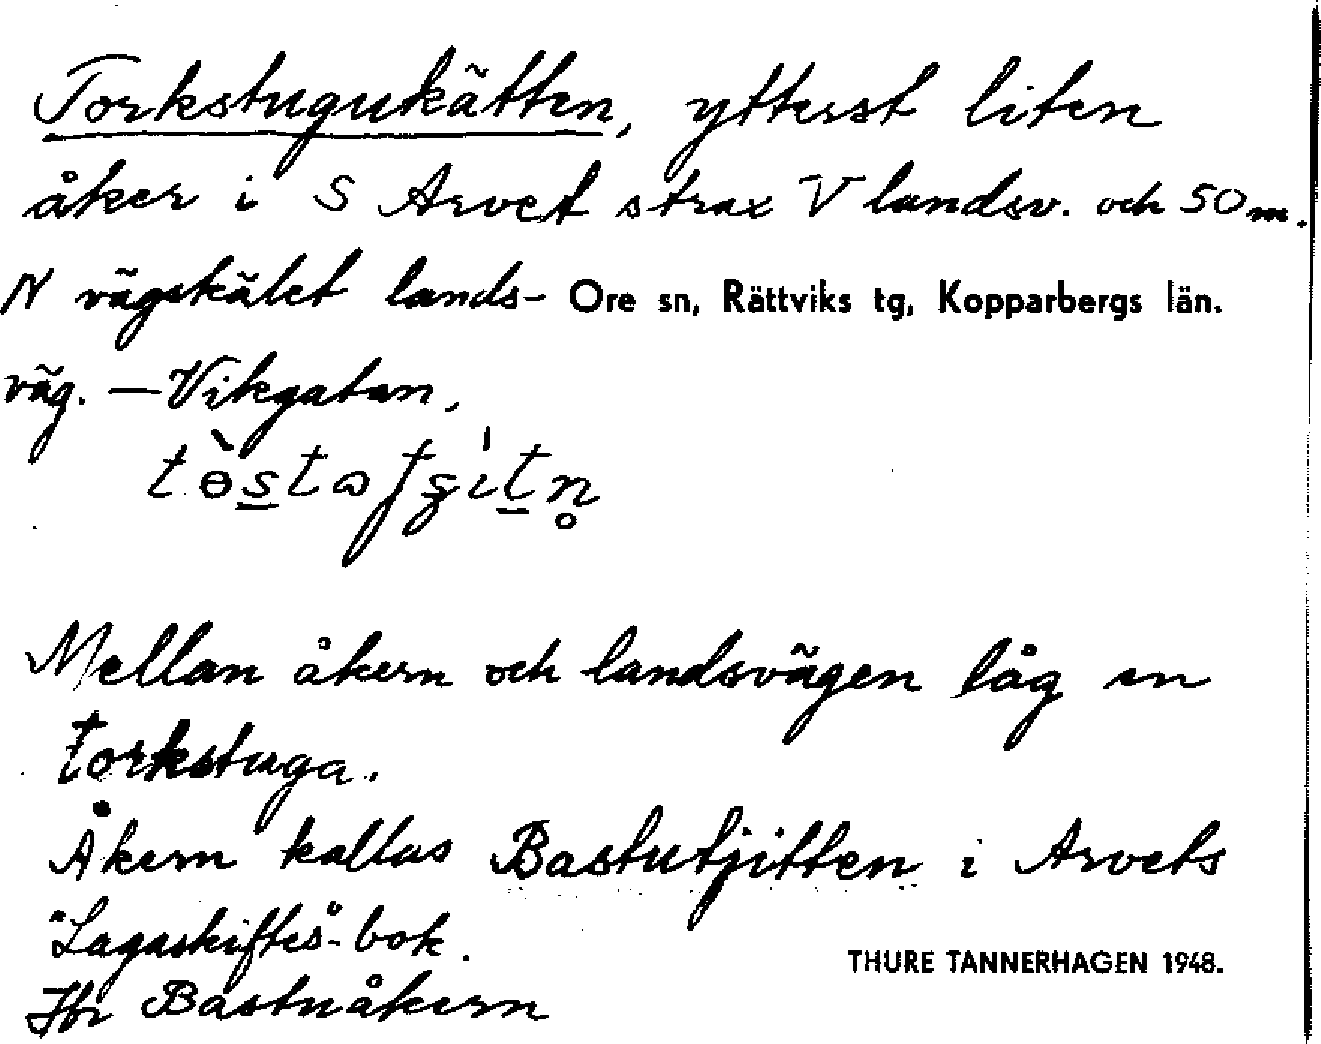 Torkstugukätten, ytterst liten
åker i S Arvet strax V landsv. och 50 m.
N vägskälet lands- Ore sn, Rättviks tg, Kopparbergs län.
väg. — Vikgatan,
Mellan åkern och landsvägen låg en
torkstuga.
Åkern kallas Bastutjitten i Arvets
"Lagaskiftes"-bok.
Jfr Bastuåkern
THURE TANNERHAGEN 1948.